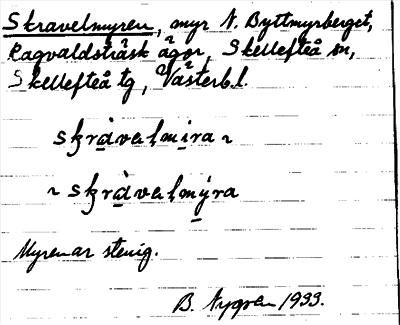 Skravelmyren, myr N. Byttmyrberget,
Ragvaldsträsk ägor, Skellefteå sn,
Skellefteå tg, Västerb.l.
skràvalmira ~
~ skràvalmýra
Myren är stenig.
B. Nygren 1933.